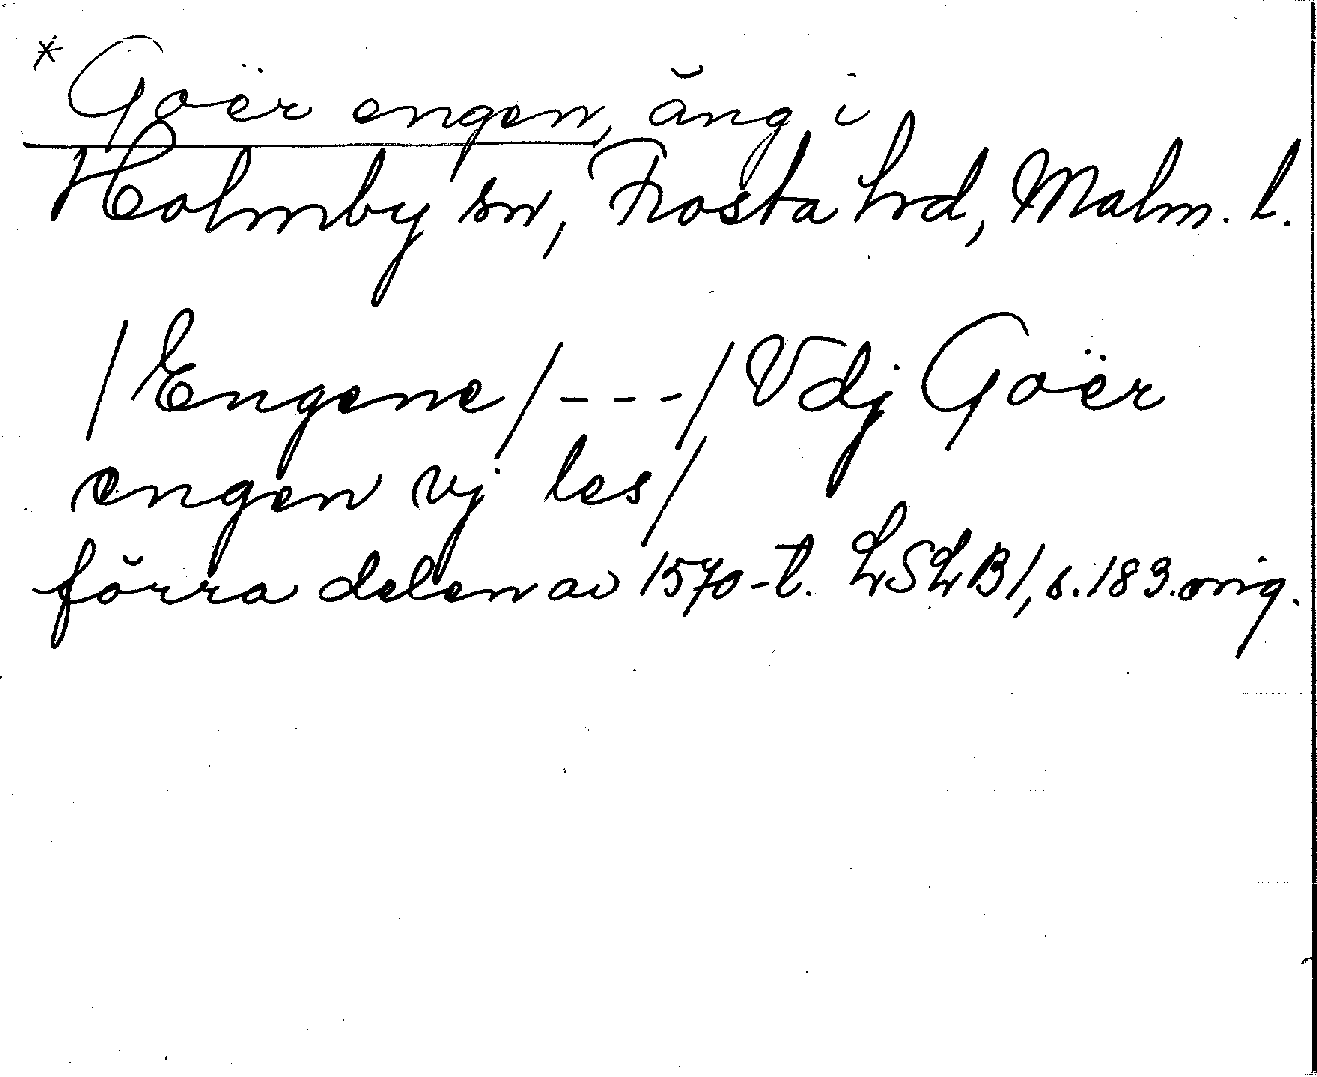 * Goër engen, äng i
Holmby sn, Frosta hrd, Malm. l.
/Engene/---/Vdj Goër
engen vj les/
förra delen av 1570-t. LSLB1, s. 183. orig.